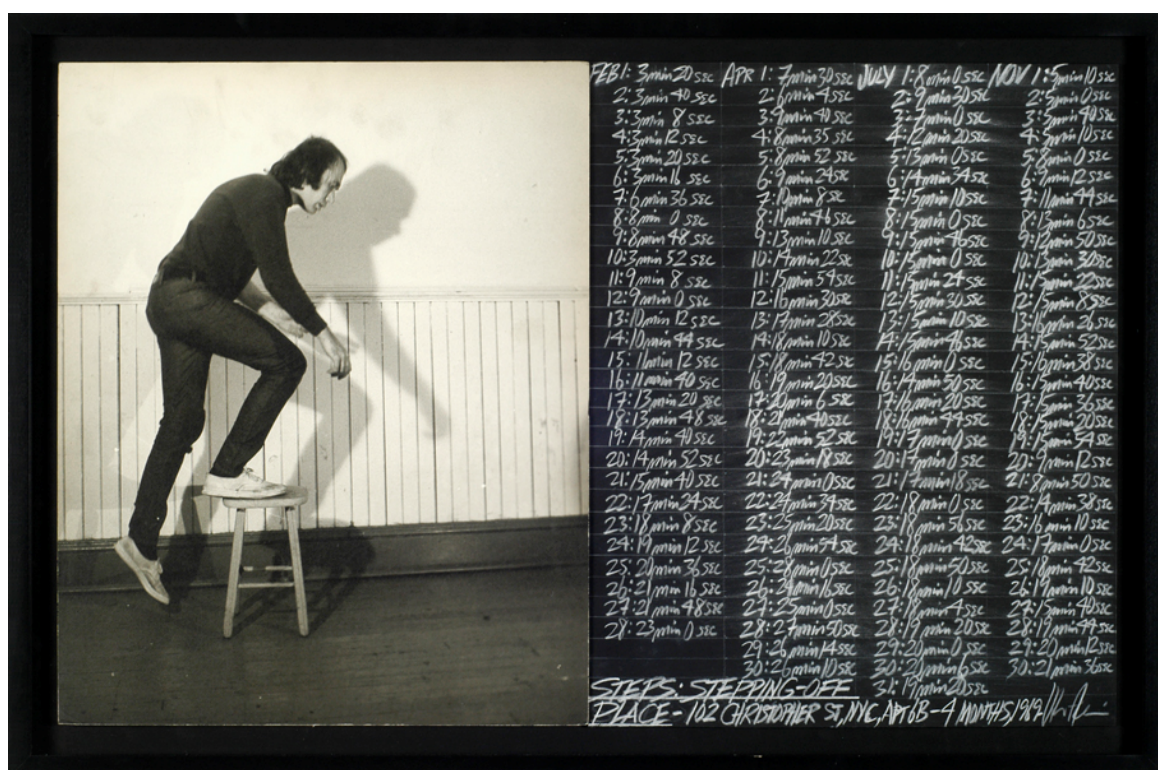 FEB 1: 3min 20 sec
2: 3min 40 sec
3: 3min 8 sec
4: 3min 12 sec
5: 3min 20 sec
6: 3min 16 sec
7: 6min 36 sec
8: 8min 0 sec
9: 8min 48 sec
10: 3min 52 sec
11: 9min 8 sec
12: 9min 0 sec
13: 10min 12 sec
14: 10min 44 sec
15: 11min 12 sec
16: 11min 40 sec
17: 13min 20 sec
18: 13min 48 sec
19: 14min 40 sec
20: 14min 52 sec
21: 15min 40 sec
22: 17min 24 sec
23: 18min 8 sec
24: 19min 12 sec
25: 20min 36 sec
26: 21min 16 sec
27: 21min 48 sec
28: 23min 0 sec
APR 1: 7min 30 sec
2: 6min 4 sec
3: 9min 40 sec
4: 8min 35 sec
5: 8min 52 sec
6: 9min 24 sec
7: 10min 8 sec
8: 11min 46 sec
9: 13min 10 sec
10: 14min 22 sec
11: 15min 54 sec
12: 16min 30 sec
13: 17min 28 sec
14: 18min 10 sec
15: 18min 42 sec
16: 19min 20 sec
17: 20min 6 sec
18: 21min 40 sec
19: 22min 52 sec
20: 23min 18 sec
21: 24min 0 sec
22: 24min 34 sec
23: 25min 20 sec
24: 26min 54 sec
25: 28min 0 sec
26: 24min 16 sec
27: 25min 0 sec
28: 27min 50 sec
29: 26min 14 sec
30: 26min 10 sec
JULY 1: 8min 0 sec
2: 9min 30 sec
3: 7min 0 sec
4: 12min 20 sec
5: 13min 0 sec
6: 14min 34 sec
7: 15min 10 sec
8: 15min 0 sec
9: 15min 46 sec
10: 15min 0 sec
11: 15min 24 sec
12: 15min 30 sec
13: 15min 10 sec
14: 15min 46 sec
15: 16min 0 sec
16: 14min 50 sec
17: 16min 20 sec
18: 16min 44 sec
19: 17min 0 sec
20: 17min 0 sec
21: 17min 18 sec
22: 18min 0 sec
23: 18min 56 sec
24: 18min 42 sec
25: 18min 50 sec
26: 18min 10 sec
27: 18min 4 sec
28: 19min 20 sec
29: 20min 0 sec
30: 20min 6 sec
31: 19min 20 sec
NOV 1: 5min 10 sec
2: 5min 0 sec
3: 5min 40 sec
4: 5min 10 sec
5: 8min 0 sec
6: 9min 12 sec
7: 11min 44 sec
8: 13min 6 sec
9: 12min 50 sec
10: 13min 30 sec
11: 15min 22 sec
12: 15min 8 sec
13: 16min 26 sec
14: 15min 52 sec
15: 16min 38 sec
16: 15min 40 sec
17: 15min 36 sec
18: 15min 20 sec
19: 15min 54 sec
20: 9min 12 sec
21: 8min 50 sec
22: 14min 38 sec
23: 16min 10 sec
24: 17min 0 sec
25: 18min 42 sec
26: 19min 10 sec
27: 15min 40 sec
28: 19min 44 sec
29: 20min 12 sec
30: 21min 36 sec
STEPS: STEPPING-OFF
PLACE - 102 CHRISTOPHER ST, NYC, APT 6B - 4 MONTHS,